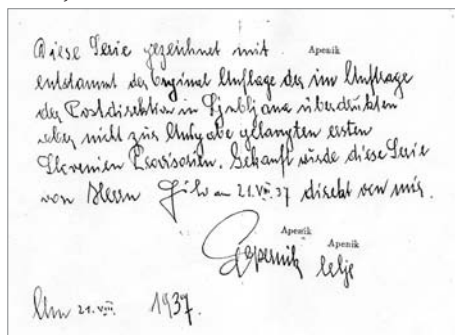 Diese Serie gezeichnet mit Apenik
entstammt der Original Auflage der im Auftrage
der Postdirektion in Ljubljana überdruckten
aber nicht zur Ausgabe gelangten ersten
Slovenien Provisorien. Gekauft wurde diese Serie
von Herrn am 21. VIII. 37 direkt von mir.
Apenik Apenik
Celje
21. VIII. 1937.